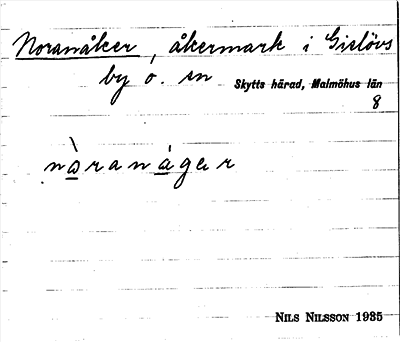 Noranåker, åkermark i Gislövs
by o. sn Skytts härad, Malmöhus län
8
nòranåger
NILS NILSSON 1935